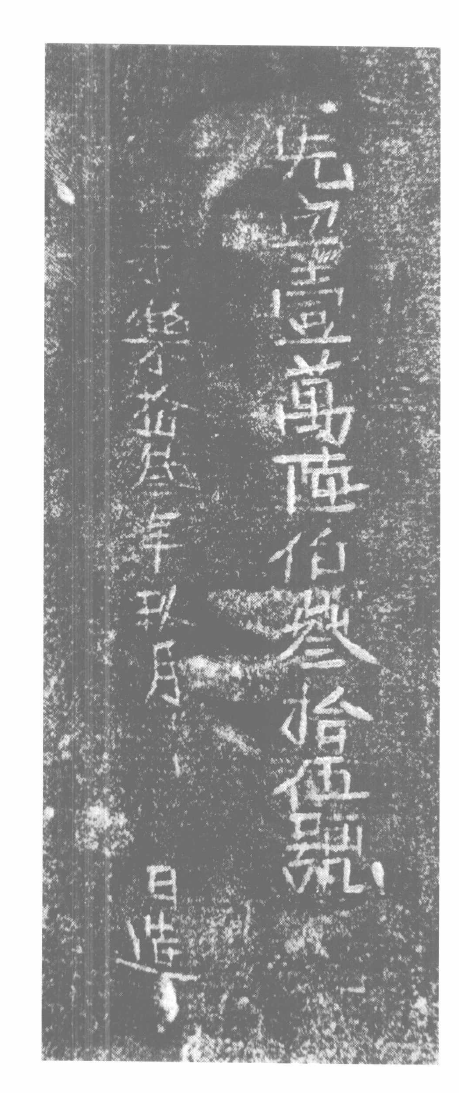 先字壹萬陸伯叁拾伍號
永樂拾叁年玖月 日造